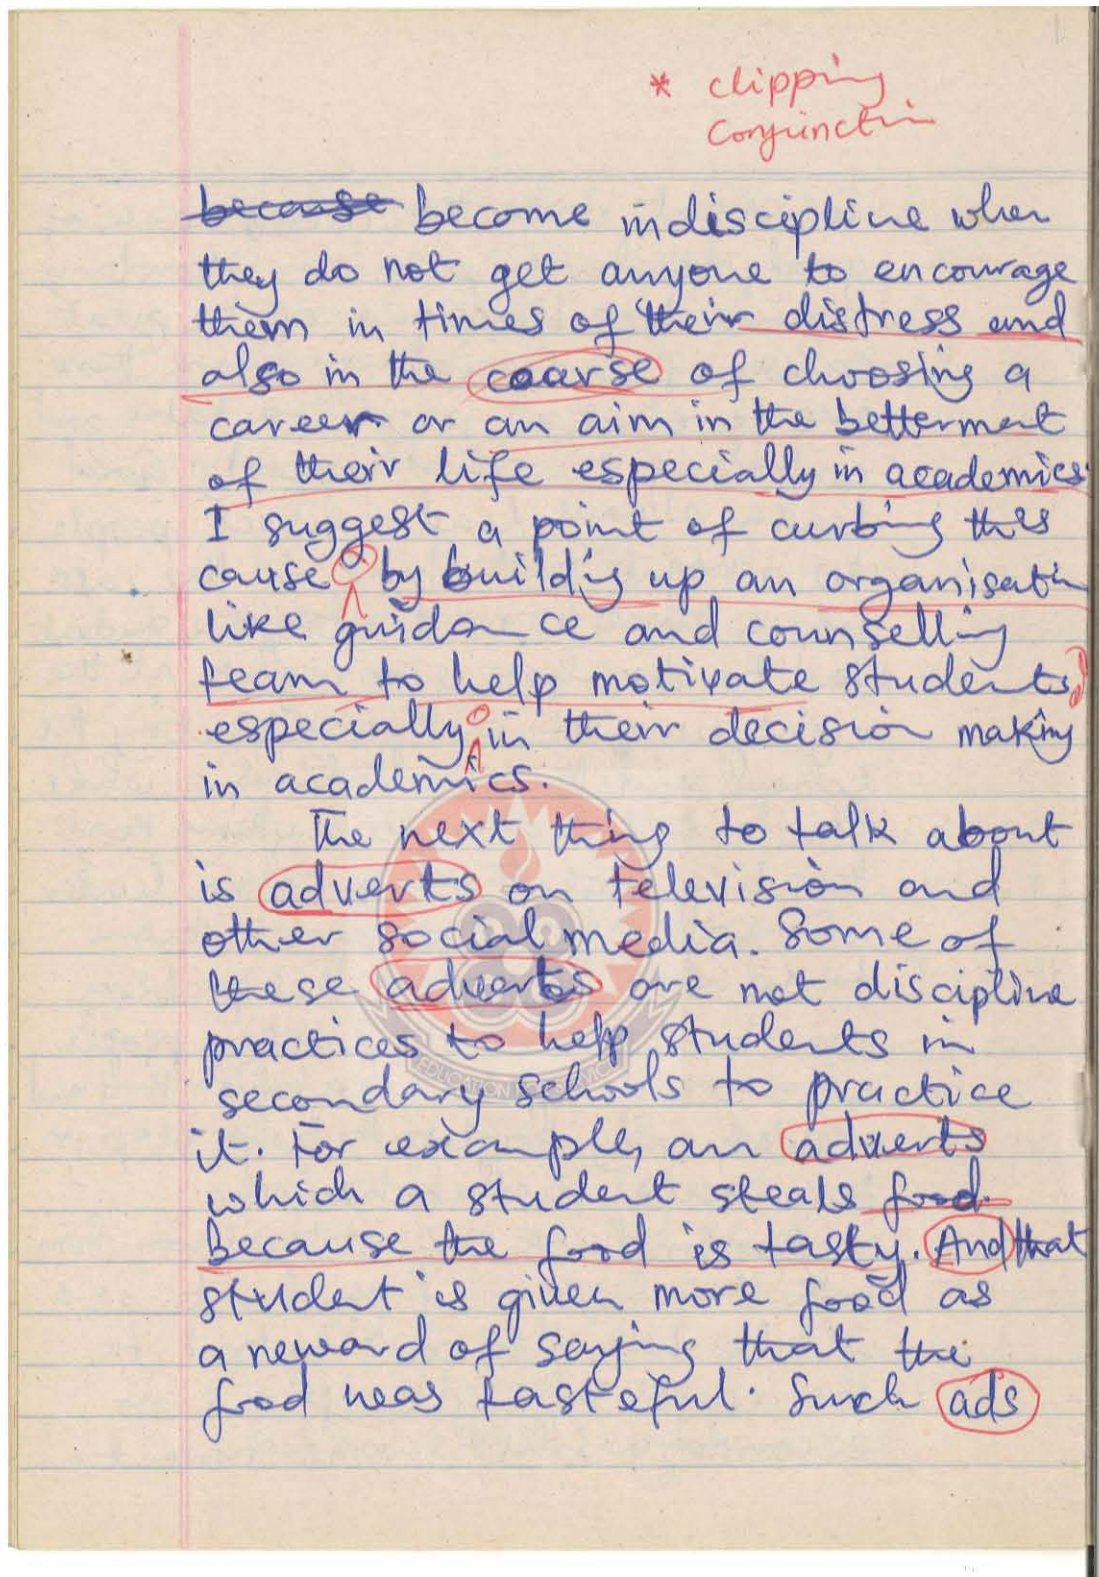 * clipping
conjunction
because become indiscipline when
they do not get anyone to encourage
them in times of their distress and
also in the coarse of choosing a
career or an aim in the betterment
of their life especially in academics.
I suggest a point of curbing this
cause by building up an organisation
like guidance and counselling
team to help motivate students,
especially in their decision making
in academics.
The next thing to talk about
is adverts on television and
other social media. Some of
these adverts are not discipline
practices to help students in
secondary schools to practice
it. For example, an adverts
which a student steals food.
Because the food is tasty. And that
student is given more food as
a reward of saying that the
food was tasteful. Such ads
EDUCATION